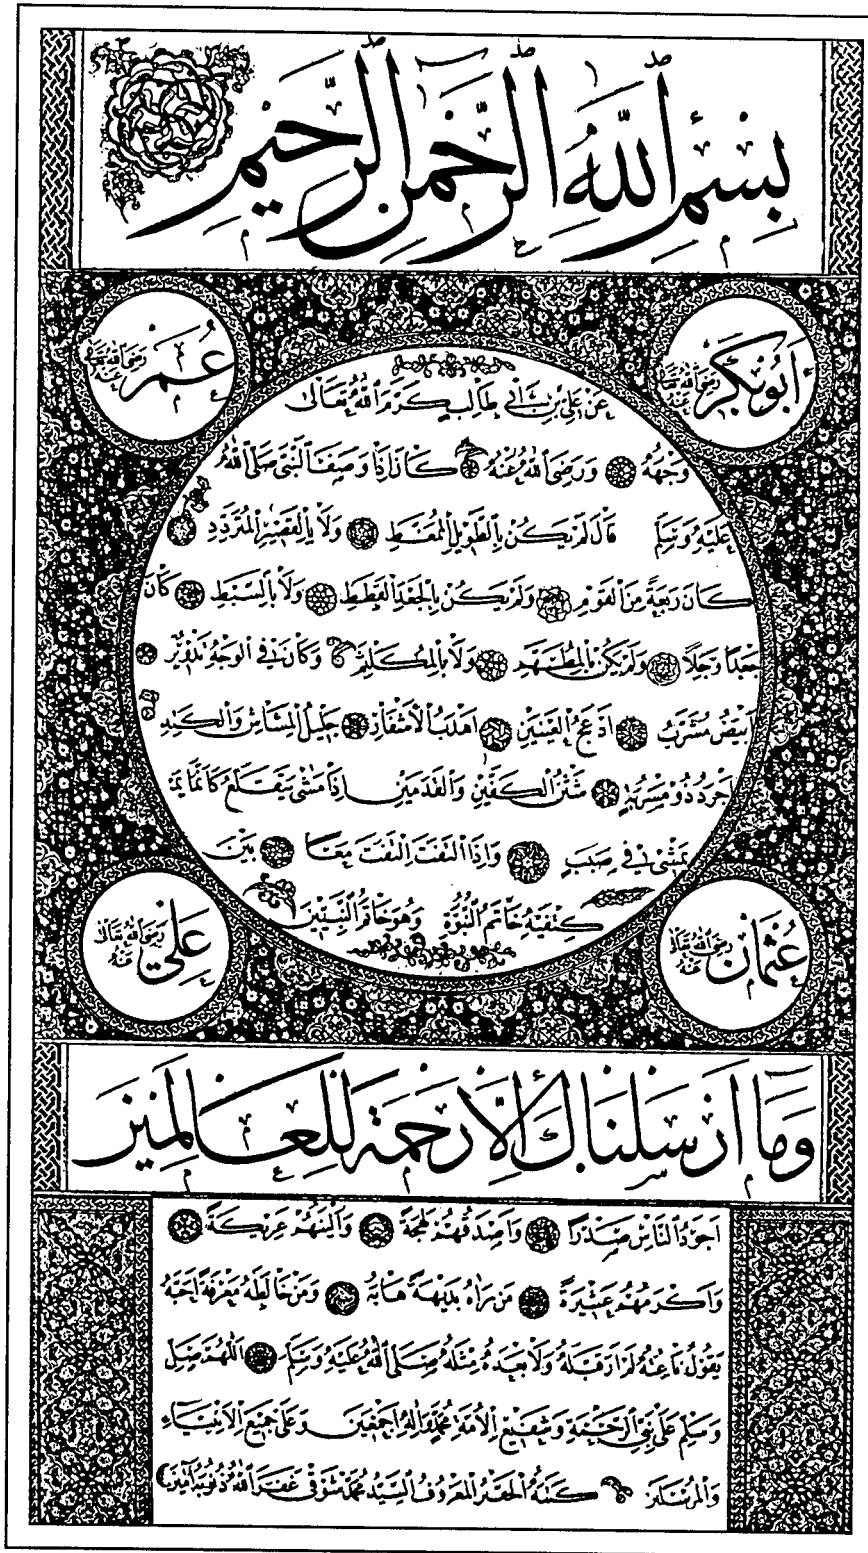 بِسْمِ اللّٰهِ الرَّحْمٰنِ الرَّحِيمِ
اَبُوبَكْرٍ رَضِيَ اللّٰهُ تَعَالٰى عَنْهُ
عُمَرْ رَضِيَ اللّٰهُ تَعَالٰى عَنْهُ
عَنْ عَلِيِّ بْنِ اَبِي طَالِبٍ كَرَّمَ اللّٰهُ تَعَالٰى
وَجْهَهُ وَرَضِيَ اللّٰهُ عَنْهُ كَانَ اِذَا وَصَفَ النَّبِيَّ صَلَّى اللّٰهُ
عَلَيْهِ وَسَلَّمَ قَالَ لَمْ يَكُنْ بِالطَّوِيلِ الْمُمَّغِطِ وَلَا بِالْقَصِيرِ الْمُتَرَدِّدِ
كَانَ رَبْعَةً مِنَ الْقَوْمِ وَلَمْ يَكُنْ بِالْجَعْدِ الْقَطَطِ وَلَا بِالسَّبْطِ كَانَ
جَعْدًا رَجِلًا وَلَمْ يَكُنْ بِالْمُطَهَّمِ وَلَا بِالْمُكَلْثَمِ وَكَانَ فِي الْوَجْهِ تَدْوِيرٌ
اَبْيَضُ مُشْرَبٌ اَدْعَجُ الْعَيْنَيْنِ اَهْدَبُ الْاَشْفَارِ جَلِيلُ الْمُشَاشِ وَالْكَتَدِ
اَجْرَدُ ذُو مَسْرُبَةٍ شَثْنُ الْكَفَّيْنِ وَالْقَدَمَيْنِ اِذَا مَشٰى يَتَقَلَّعُ كَاَنَّمَا
يَمْشِي فِي صَبَبٍ وَاِذَا الْتَفَتَ الْتَفَتَ مَعًا بَيْنَ
كَتِفَيْهِ خَاتَمُ النُّبُوَّةِ وَهُوَ خَاتَمُ النَّبِيِّينَ
عُثْمَانْ رَضِيَ اللّٰهُ تَعَالٰى عَنْهُ
عَلِي رَضِيَ اللّٰهُ تَعَالٰى عَنْهُ
وَمَا اَرْسَلْنَاكَ اِلَّا رَحْمَةً لِلْعَالَمِينَ
اَجْوَدُ النَّاسِ صَدْرًا وَاَصْدَقُهُمْ لَهْجَةً وَاَلْيَنُهُمْ عَرِيكَةً
وَاَكْرَمُهُمْ عَشِيرَةً مَنْ رَاٰهُ بَدِيهَةً هَابَهُ وَمَنْ خَالَطَهُ مَعْرِفَةً اَحَبَّهُ
يَقُولُ نَاعِتُهُ لَمْ اَرَ قَبْلَهُ وَلَا بَعْدَهُ مِثْلَهُ صَلَّى اللّٰهُ عَلَيْهِ وَسَلَّمَ اَللّٰهُمَّ صَلِّ
وَسَلِّمْ عَلٰى نَبِيِّ الرَّحْمَةِ وَشَفِيعِ الْاُمَّةِ مُحَمَّدٍ وَاٰلِهِ اَجْمَعِينَ وَعَلٰى جَمِيعِ الْاَنْبِيَاءِ
وَالْمُرْسَلِينَ كَتَبَهُ الْحَقِيرُ الْمَعْرُوفُ السَّيِّدُ مُحَمَّدْ شَوْقِي غَفَرَ اللّٰهُ ذُنُوبَهُ اٰمِينَ